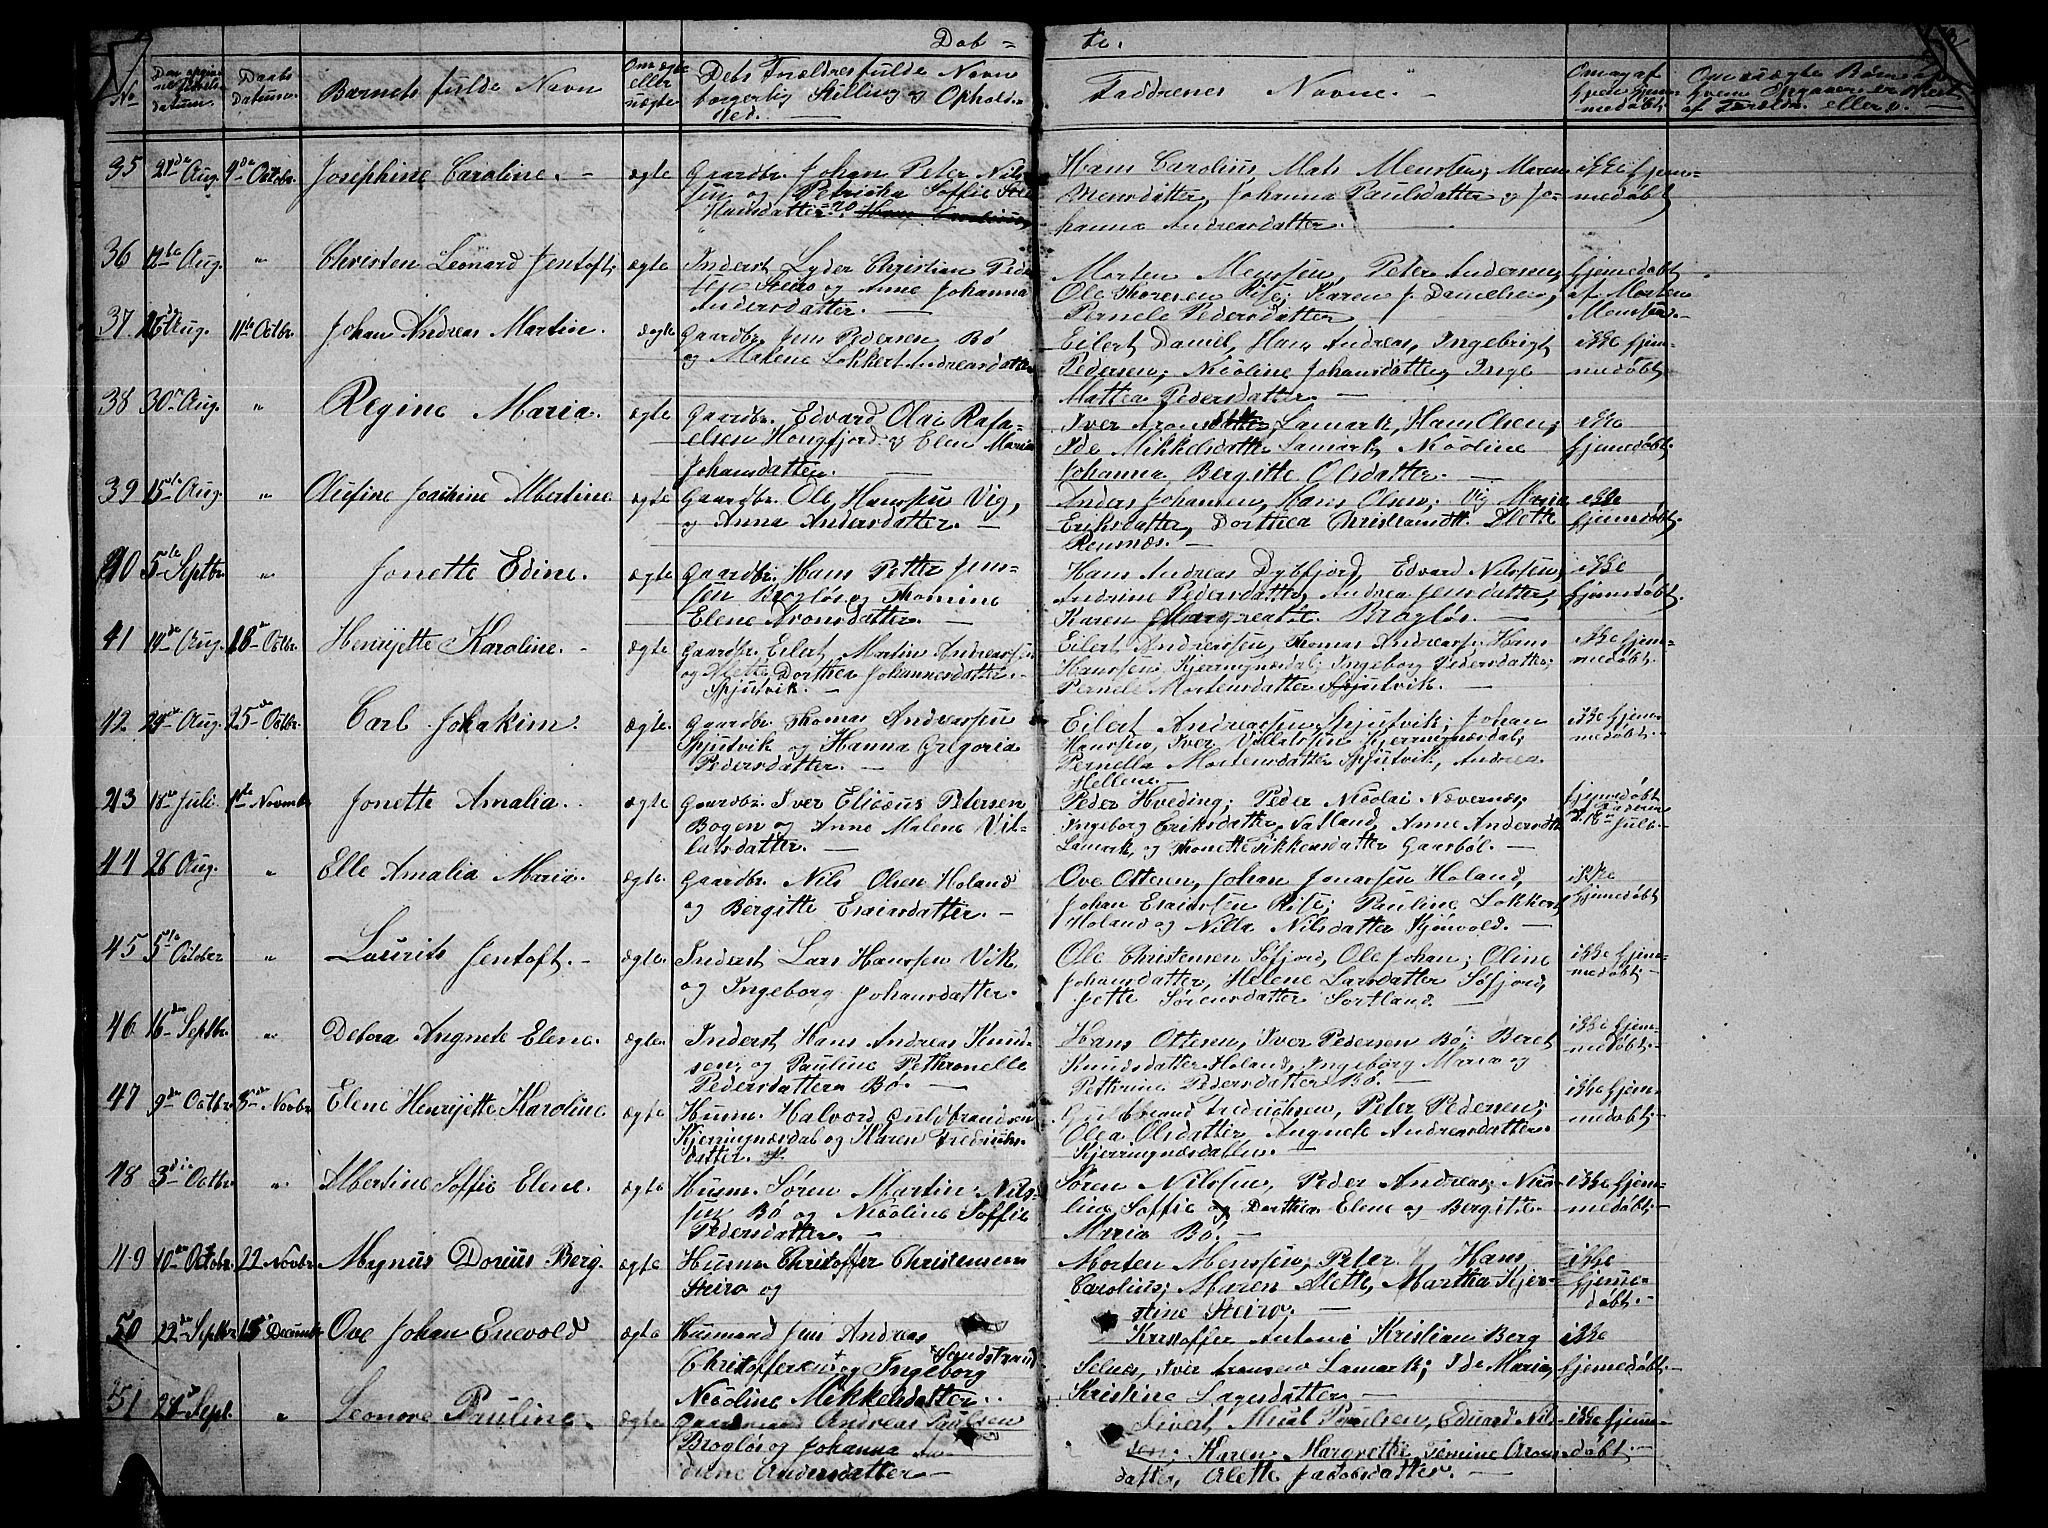 Døb = te.
No
Daabs Datum
Barnets fulde Navn
Om ægte eller uægte
Dets Forældres fulde Navn borgerlig Stilling og Opholds Sted.
Faddrenes Navne.
35 9de Octobr. Josephine Caroline. ægte Gaardbr. Johan Peter Nils-
sen og Soffie
Hansdatter
Hans Carolius, Mats Monsen; Maren
Monsdatter, Johanna Paulsdatter og Jo-
hanna Andreasdatter.
ikke hjem-
medøbt
36 12te Aug. " Christen Leonard Jentoft, ægte Inderst Lyder Christian Peder
og Anne Johanna
Andersdatter.
Morten Monssen, Peter Andersen,
Ole Thoresen Rise; Karen J. Danielsen,
Pernele Pedersdatter
hjemedøbt
af Morten
Monssen.
37 Aug. 11te Octbr. Johan Andreas Martin. ægte Gaardbr. Jens Pedersen Bø
og Malene Lokkert Andreasdatter
Eilert Daniel, Hans Andreas, Ingebrigt
Pedersen; Nicoline Johansdatter, Inge
Mattea Pedersdatter.
ikke hjem-
medøbt
38 30te Aug. " Regine Maria. ægte Gaardbr. Edvard Olai Rafa-
elsen Hougfjord og Elen Maria
Johansdatter.
Iver Aronsen Lamark, Hans Olsen;
Ida Mikkelsdatter Lamark, Nicoline
Johanna Bergitte Olsdatter.
ikke
hjemmedøbt.
39 15te Aug. " Olufine Joachine Albertine ægte Gaardbr. Ole Hanssen Vig,
og Anna Andersdatter.
Anders Johansen, Hans Olsen; Vig Maria
Eriksdatter, Dorthea Christiansdt. Alette
Reinsnæs.
ikke
hjemedøbt.
40 5te Septbr. " Jonette Edine. ægte Gaardbr. Hans Petter Jen-
sen Brogløs og Thomine
Elene Aronsdatter.
Hans Andreas Dybfjord, Edvard Nilssen,
Andrine Pedersdatter, Andrea Jensdatter,
Karen Margreate Brogløs.
ikke
hjemedøbt.
41 14de Aug. 18de Octbr. Henrijette Karoline. ægte Gaardbr. Eilert Martin Andreassen
og Alette Dorthea Johannesdatter.
Spjutvik.
Eilert Andreassen, Thomas Andreass. Hans
Hanssen, Kjerringnesdal; Ingeborg Pedersdatter;
Pernele Mortensdatter Spjutvik.
ikke hjem-
medøbt.
42 24de Aug. 25de Octbr. Carl Johakim. ægte. Gaardbr. Thomas Andreassen
Spjutvik og Hanna Gregoria
Pedersdatter.
Eilert Andreassen Spjutvik, Johan
Hanssen, Iver Villatssen Kjerringnesdal;
Pernella Mortensdatter Spjutvik, Andrea
Hellene.
ikke hjem-
medøbt.
43 18de Juli 1ste Novmbr. Jonette Amalia. ægte Gaardbr. Iver Elicæus Petersen
Bogen og Anne Malene Vil-
latsdatter.
Peder Hveding; Peder Nicolai Nævernes;
Ingeborg Eriksdatter Natland, Anne Andersdtr.
Lamark, og Thonette Sikkensdatter Gaasbøl.
hjemedøbt
Juli.
44 26 Aug. " Elle Amalia Maria. ægte. Gaardbr. Nils Olsen Holand
og Bergitte Esaiasdatter.
Ove Ottesen, Johan Jonassen Holand,
Johan Esaiassen Rise; Pauline Lokkert
Holand og Nilla Nilsdatter Kjønvold.
ikke
hjemmedøbt
45 5te October " Laurits Jentoft. ægte. Inderst Lars Hanssen Vik.
og Ingeborg Johansdatter.
Ole Christensen Søfjord, Ole Johan; Oline
Johansdatter, Helene Larsdatter Søfjord,
Jette Sørensdatter Sortland.
ikke hjem-
medøbt.
46 16de Septbr. " Debora Angnete Elene. ægte. Inderst Hans Andreas Knud-
sen og Pauline Petteronelle
Pedersdatter Bø.
Hans Ottesen, Iver Pedersen Bø; Beret
Knudsdatter Holand, Ingeborg Maria og
Petterine Pedersdatter Bø.
ikke hjem-
medøbt.
47 9de Octbr. 8de Novbr. Elene Henrijette Karoline ægte Husm. Halvord Guldbrandsen
Kjerringnesdal og Karen Fredriks-
datter.
Guldbrand Fredriksen, Peter Pedersen;
Olea Olsdatter, Angnete Andreasdatter
Kjerringnesdalen.
ikke hjem-
medøbt.
48 3die Octbr. " Albertine Soffie Elene. ægte Husm. Søren Martin Nils-
sen Bø og Nicoline Soffie
Pedersdatter.
Søren Nilssen, Peder Andreas; Nico-
line Soffie og Dorthea Elene og Bergitte
Maria Bø.
ikke hjem-
medøbt.
49 10de Octobr. 22 Novbr. Magnus Dorius Berg. ægte Husm. Christoffer Christensen
Steiro og
Morten Monssen, Peter, Hans
Carolius; Maren Alette, Martha Kjer-
stine Steiro.
ikke
hjeme-
døbt.
50 22de Septbr. Decembr. Ove Johan Enevold ægte Husmand Jens Andreas
Christoffersen og Ingeborg Sandstrand
Nicoline Mikkelsdatter.
Kristoffer Antoni Kristian Berg
Selnes, Iver Aronsen Lamark; Ida Maria,
Kristine Lagesdatter.
ikke
hjemedøbt.
51 Sept. " Leonore Pauline ægte Andreas Paulsen
Brogløs og Johanna
dine Andersdatter
Sivert Paulsen, Eduard Nil-
sen, Karen Margrethe, Temine Aron-
datter, Alette Jacobsdatter.
ikke hjem-
døbt.